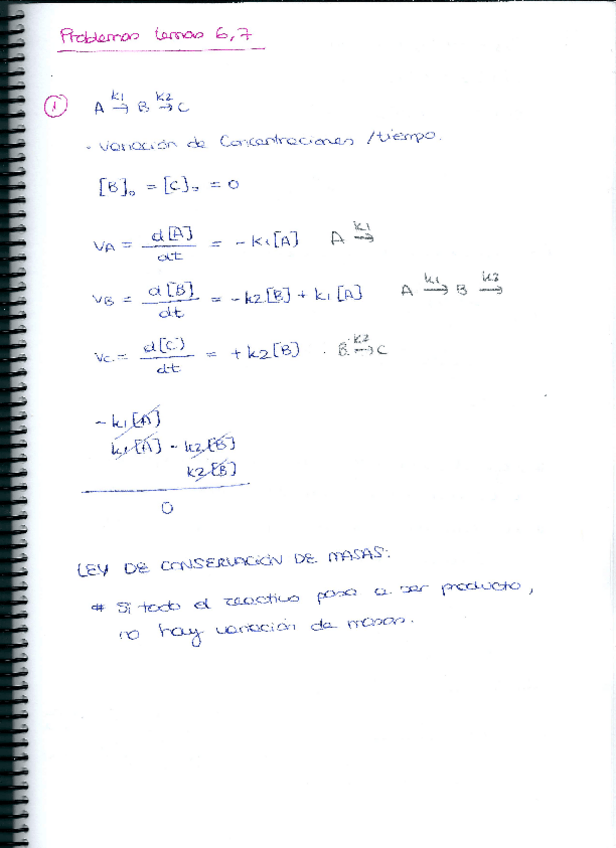 Problemas temas 6,7
① A →k1 B →k2 C
- Variación de concentraciones /tiempo.
[B]₀ = [C]₀ = 0
VA = d[A]/dt = -k1[A] A →k1
VB = d[B]/dt = -k2[B] + k1[A] A →k1 B →k2
Vc = d[C]/dt = +k2[B] B →k2 C
-k1[A]
k1[A] - k2[B]
k2[B]
0
LEY DE CONSERVACIÓN DE MASAS:
* Si todo el reactivo pasa a ser producto,
no hay variación de masas.